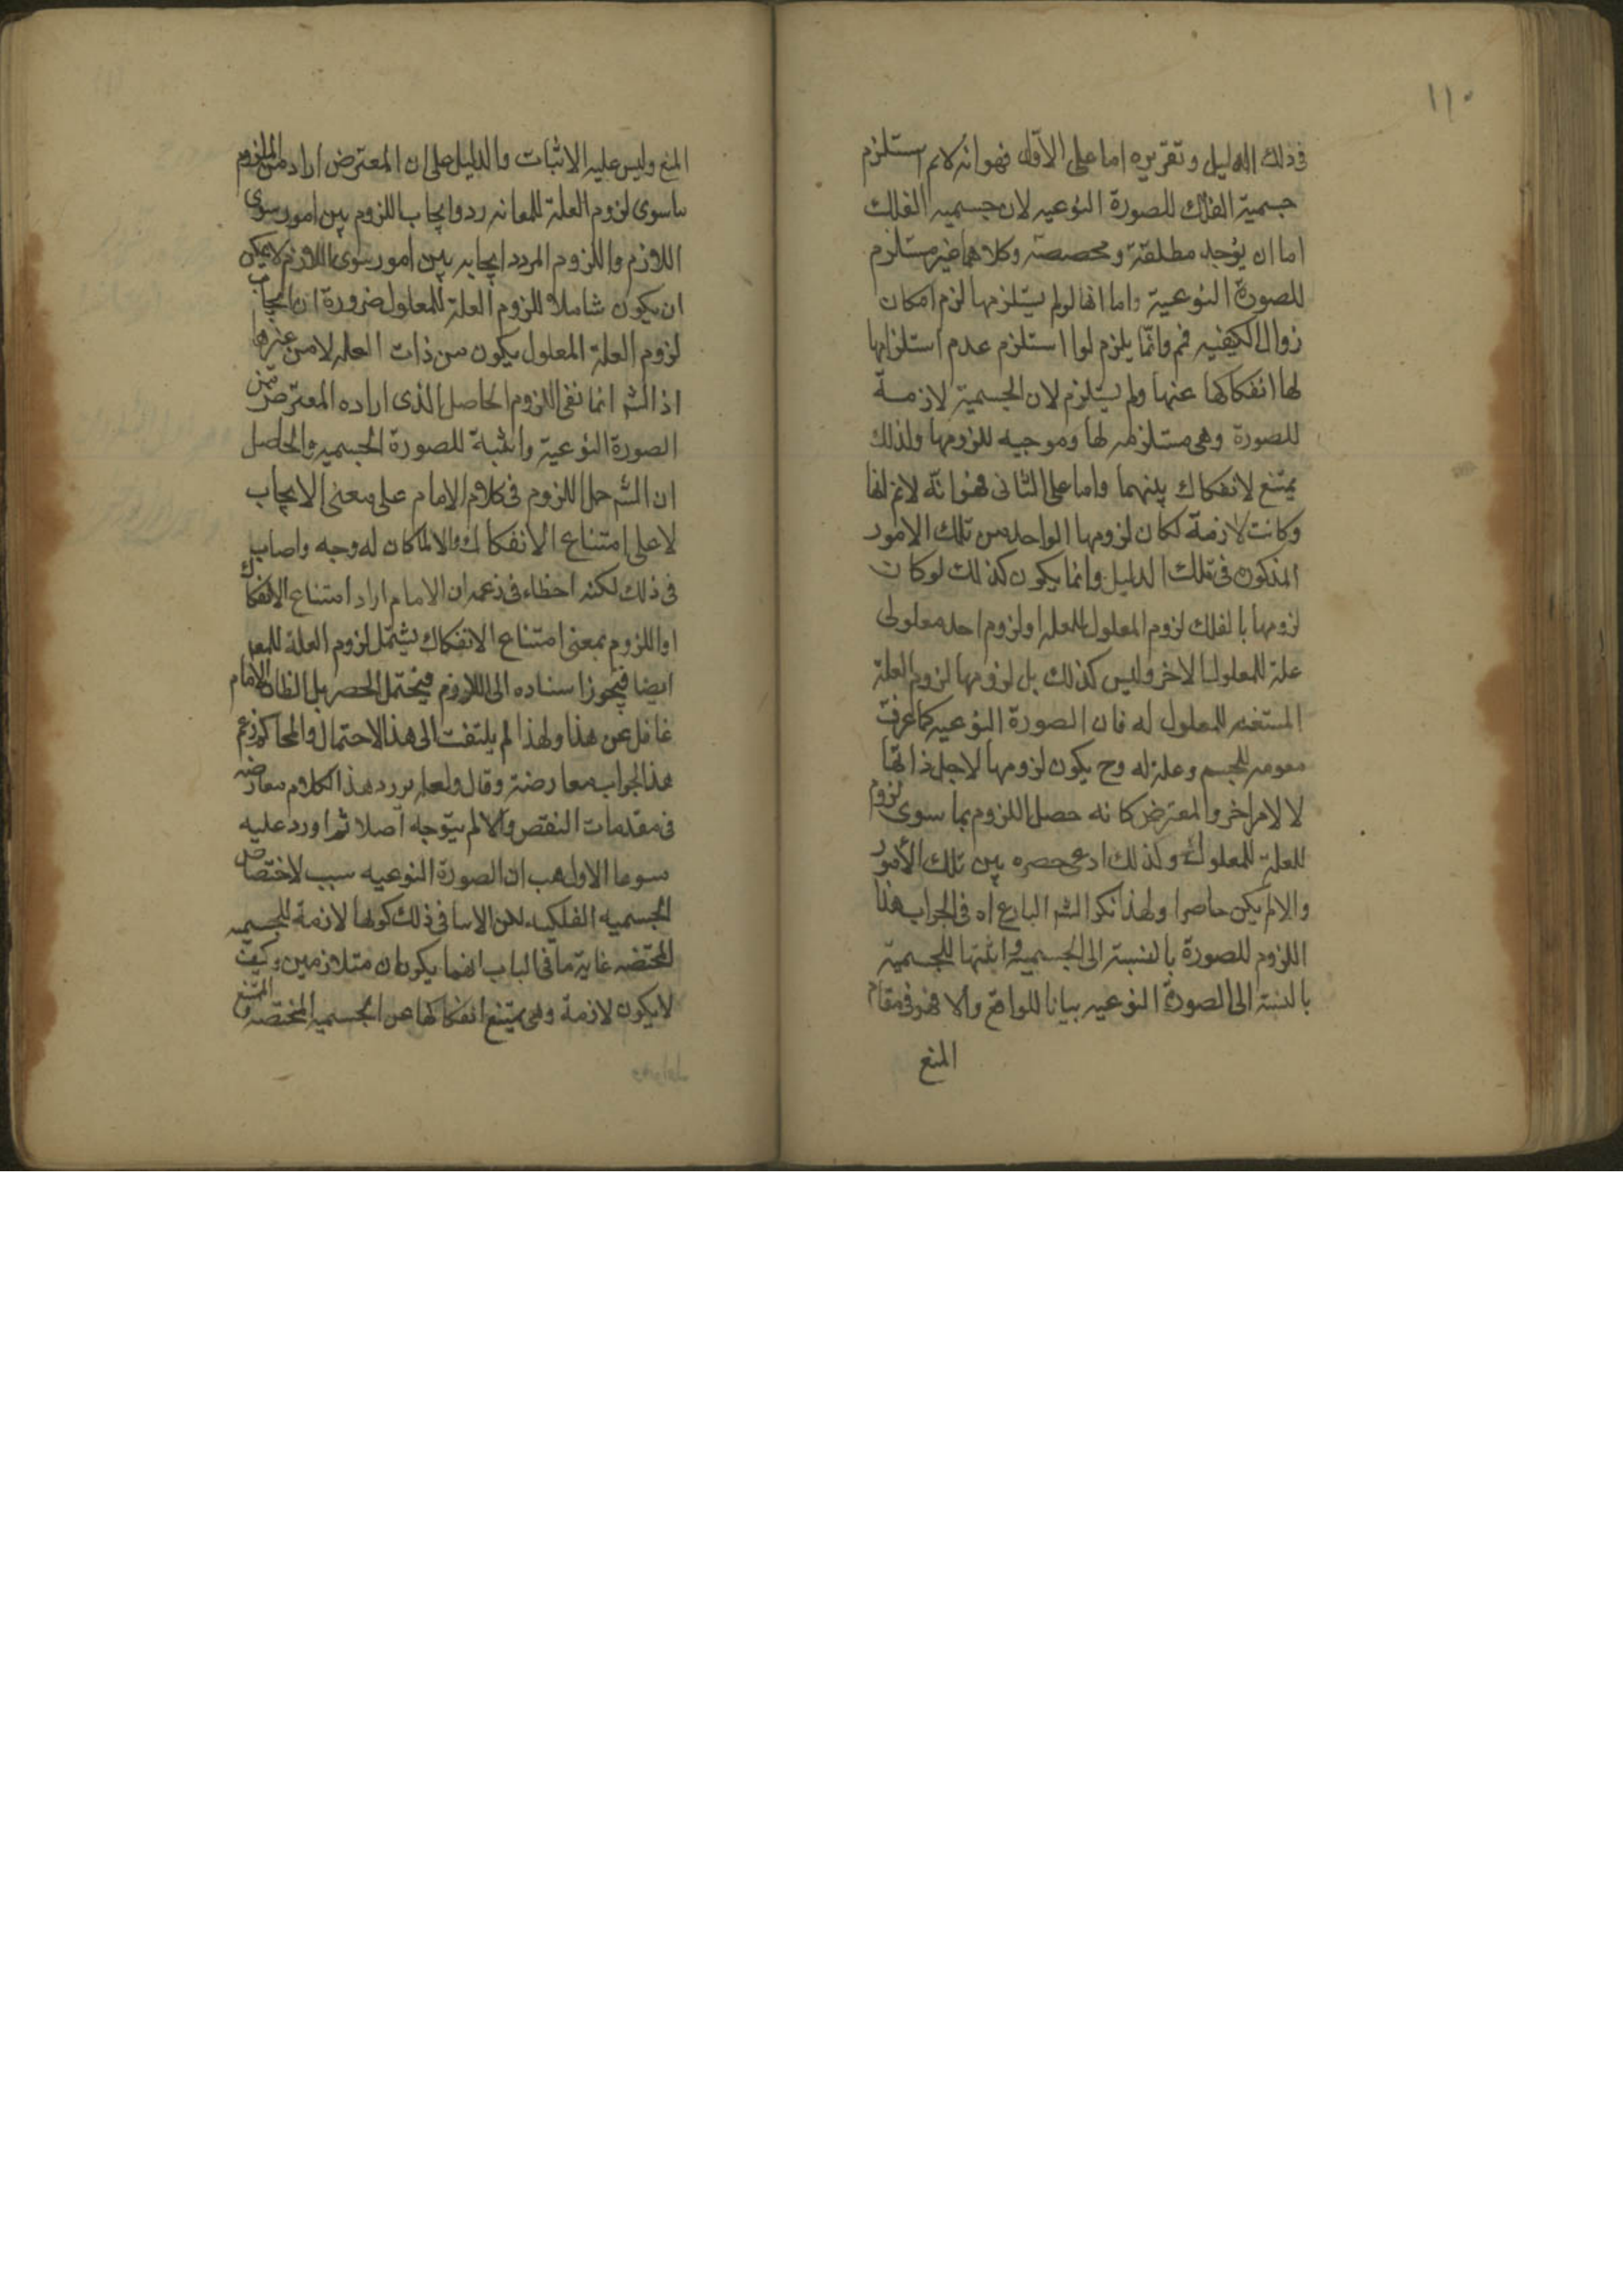 ١١٠
فى ذلك الدليل وتقريره اما على الاول فهو انه لانم استلزم
جسمية الفلك للصورة النوعيه لان جسميه الفلك
اما ان يوجد مطلقة ومخصصة وكلاهما غير مستلزم
للصورة النوعية واما انها لو لم يستلزمها لزم امكان
زوال الكيفيه فمم وانما يلزم لو استلزم عدم استلزامها
لها انفكاكها عنها ولم يستلزم لان الجسمية لازمة
للصورة وهى مستلزمه لها وموجبه للزومها ولذلك
يمتنع لانفكاك بينهما واما على الثانى فهو انه لانم انها
وكانت لازمة لكان لزومها الواحد من تلك الامور
المذكوره فى تلك الدليل وانما يكون كذلك لو كان
لزومها بالفلك لزوم المعلول للعله او لزوم احد معلولى
علة للمعلول الاخر وليس كذلك بل لزومها لزوم العلة
للمعلول له فان الصورة النوعيه كما عرفت
مقومه للجسم وعلة له وح يكون لزومها لاجل ذاتها
لا لامر اخر والمعترض كانه حصل اللزوم بما سوى لزوم
العلة للمعلول ولذلك ادعى حصره بين تلك الأمور
والا لم يكن حاصرا ولهذا نكر الشم البارع اه فى الجواب هذا
اللزوم للصورة بالنسبة الى الجسمية واثبتها للجسمية
بالنسبة الى الصورة النوعيه بيانا للواقع والا فهو فى مقام
المنع
المنع وليس عليه الاثبات والدليل على ان المعترض اراد من اللزوم
ما سوى لزوم العلة للمعا نه ردد ايجاب اللزوم بين امور سوى
اللازم واللزوم المردد ايجابه بين امور سوى اللازم لا يمكن
ان يكون شاملا للزوم العلة للمعلول ضرورة ان ايجاب
لزوم العلة المعلول يكون من ذات العله لا من غيرها
اذ الشم انما نفى اللزوم الحاصل الذى اراده المعترض من
الصورة النوعية واثبته للصورة الجسميه والحاصل
ان الشم حمل اللزوم فى كلام الامام على معنى الايجاب
لا على امتناع الانفكاك والا لما كان له وجه واصاب
فى ذلك لكنه اخطاء فى زعمه ان الامام اراد امتناع الانفكاك
او اللزوم بمعنى امتناع الانفكاك يشتمل لزوم العلة للمعد
ايضا فيجوز اسناده الى اللازم فيختمل الحصر بل الظان الامام
غافل عن هذا ولهذا لم يلتفت الى هذا الاحتمال والمحاكم زعم
هذا الجواب معارضة وقال ولعله يورد هذا الكلام معارضه
فى مقدمات النقض والا لم يتوجه اصلا ثم اورد عليه
الاول هب ان الصورة النوعيه سبب لاختصاص
الجسميه الفلكيه لكن فى ذلك كونها لازمة للجسميه
المختصه غاية ما فى الباب انهما يكونان متلازمين وكيف
لا يكون لازمة وهى يمتنع انفكاكها عن الجسميه المختصه